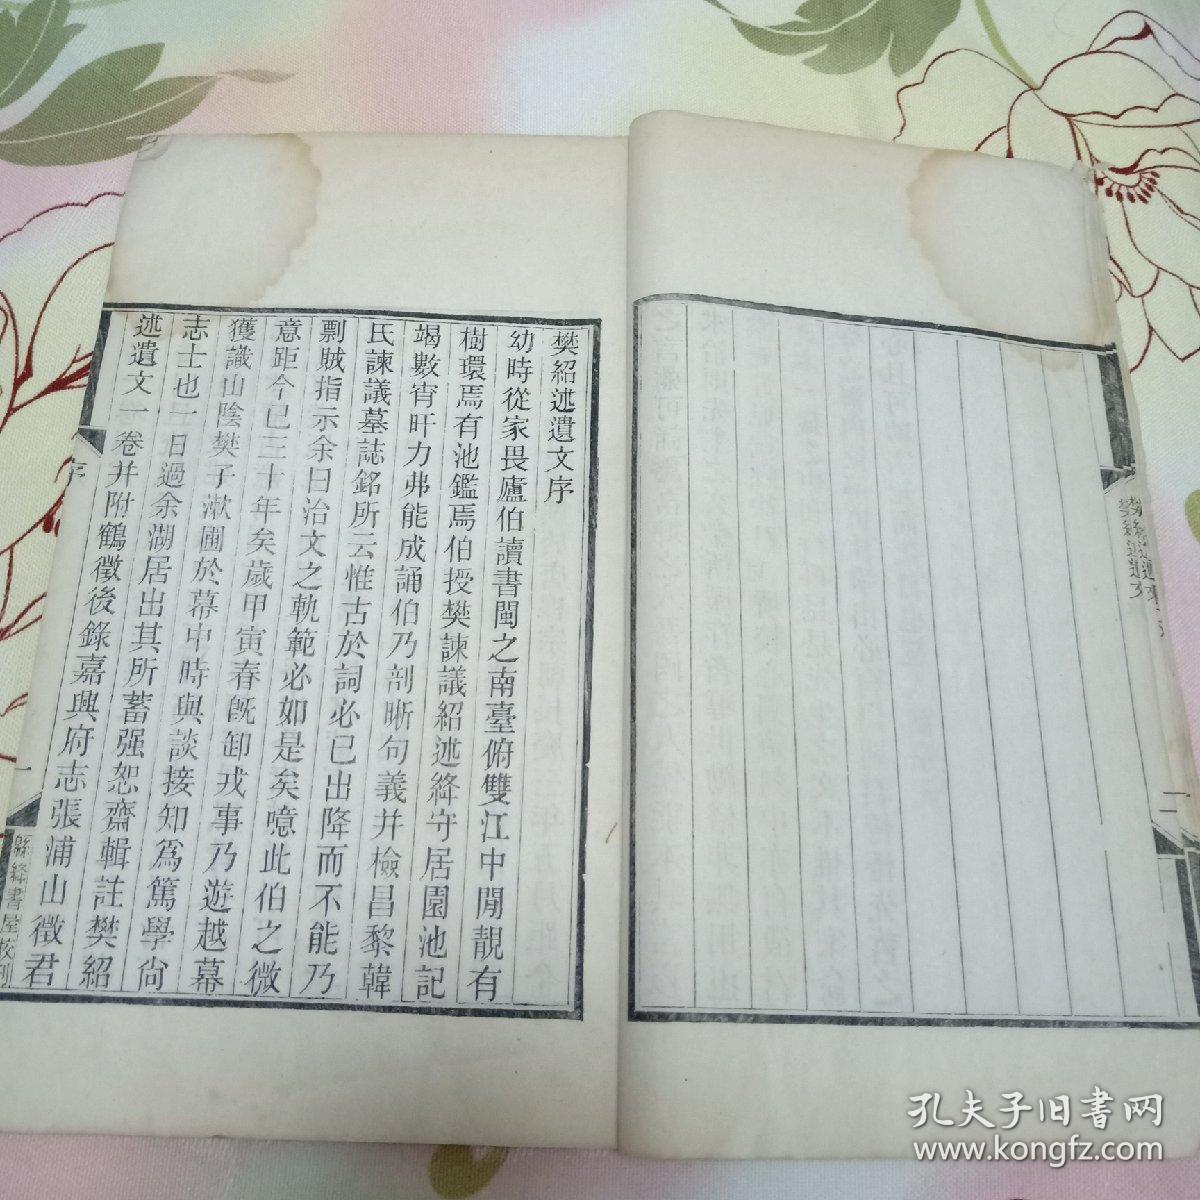 樊紹述遺文序
幼時從家畏廬伯讀書閩之南臺俯雙江中閒靚有
樹環焉有池鑑焉伯授樊諫議紹述絳守居園池記
竭數宵旰力弗能成誦伯乃剖晰句義并檢昌黎韓
氏諫議墓誌銘所云惟古於詞必已出降而不能乃
剽賊指示余曰治文之軌範必如是矣噫此伯之微
意距今已三十年矣歲甲寅春旣卸戎事乃遊越幕
獲識山陰樊子漱圃於幕中時與談接知爲篤學尙
志士也一日過余湖居出其所蓄强恕齋輯註樊紹
述遺文一卷并附鶴徵後錄嘉興府志張浦山徵君
序
一
緜絳書屋校刊
樊紹述遺文
二
孔夫子旧书网
www.kongfz.com